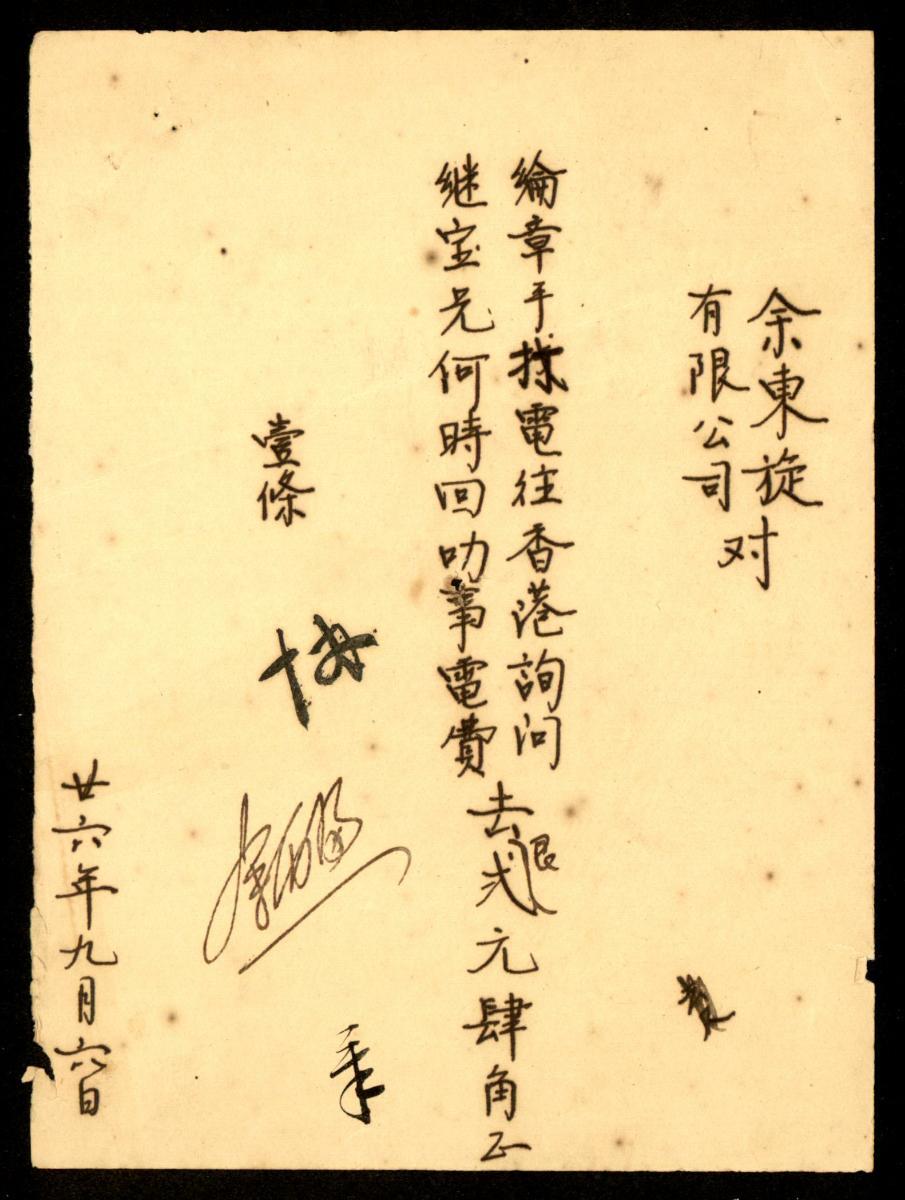 余東旋
有限公司 对
綸章手 電往香港詢问
继宝兄何時回叻事電費
去銀弍元肆角正
壹條
廿六年九月六日